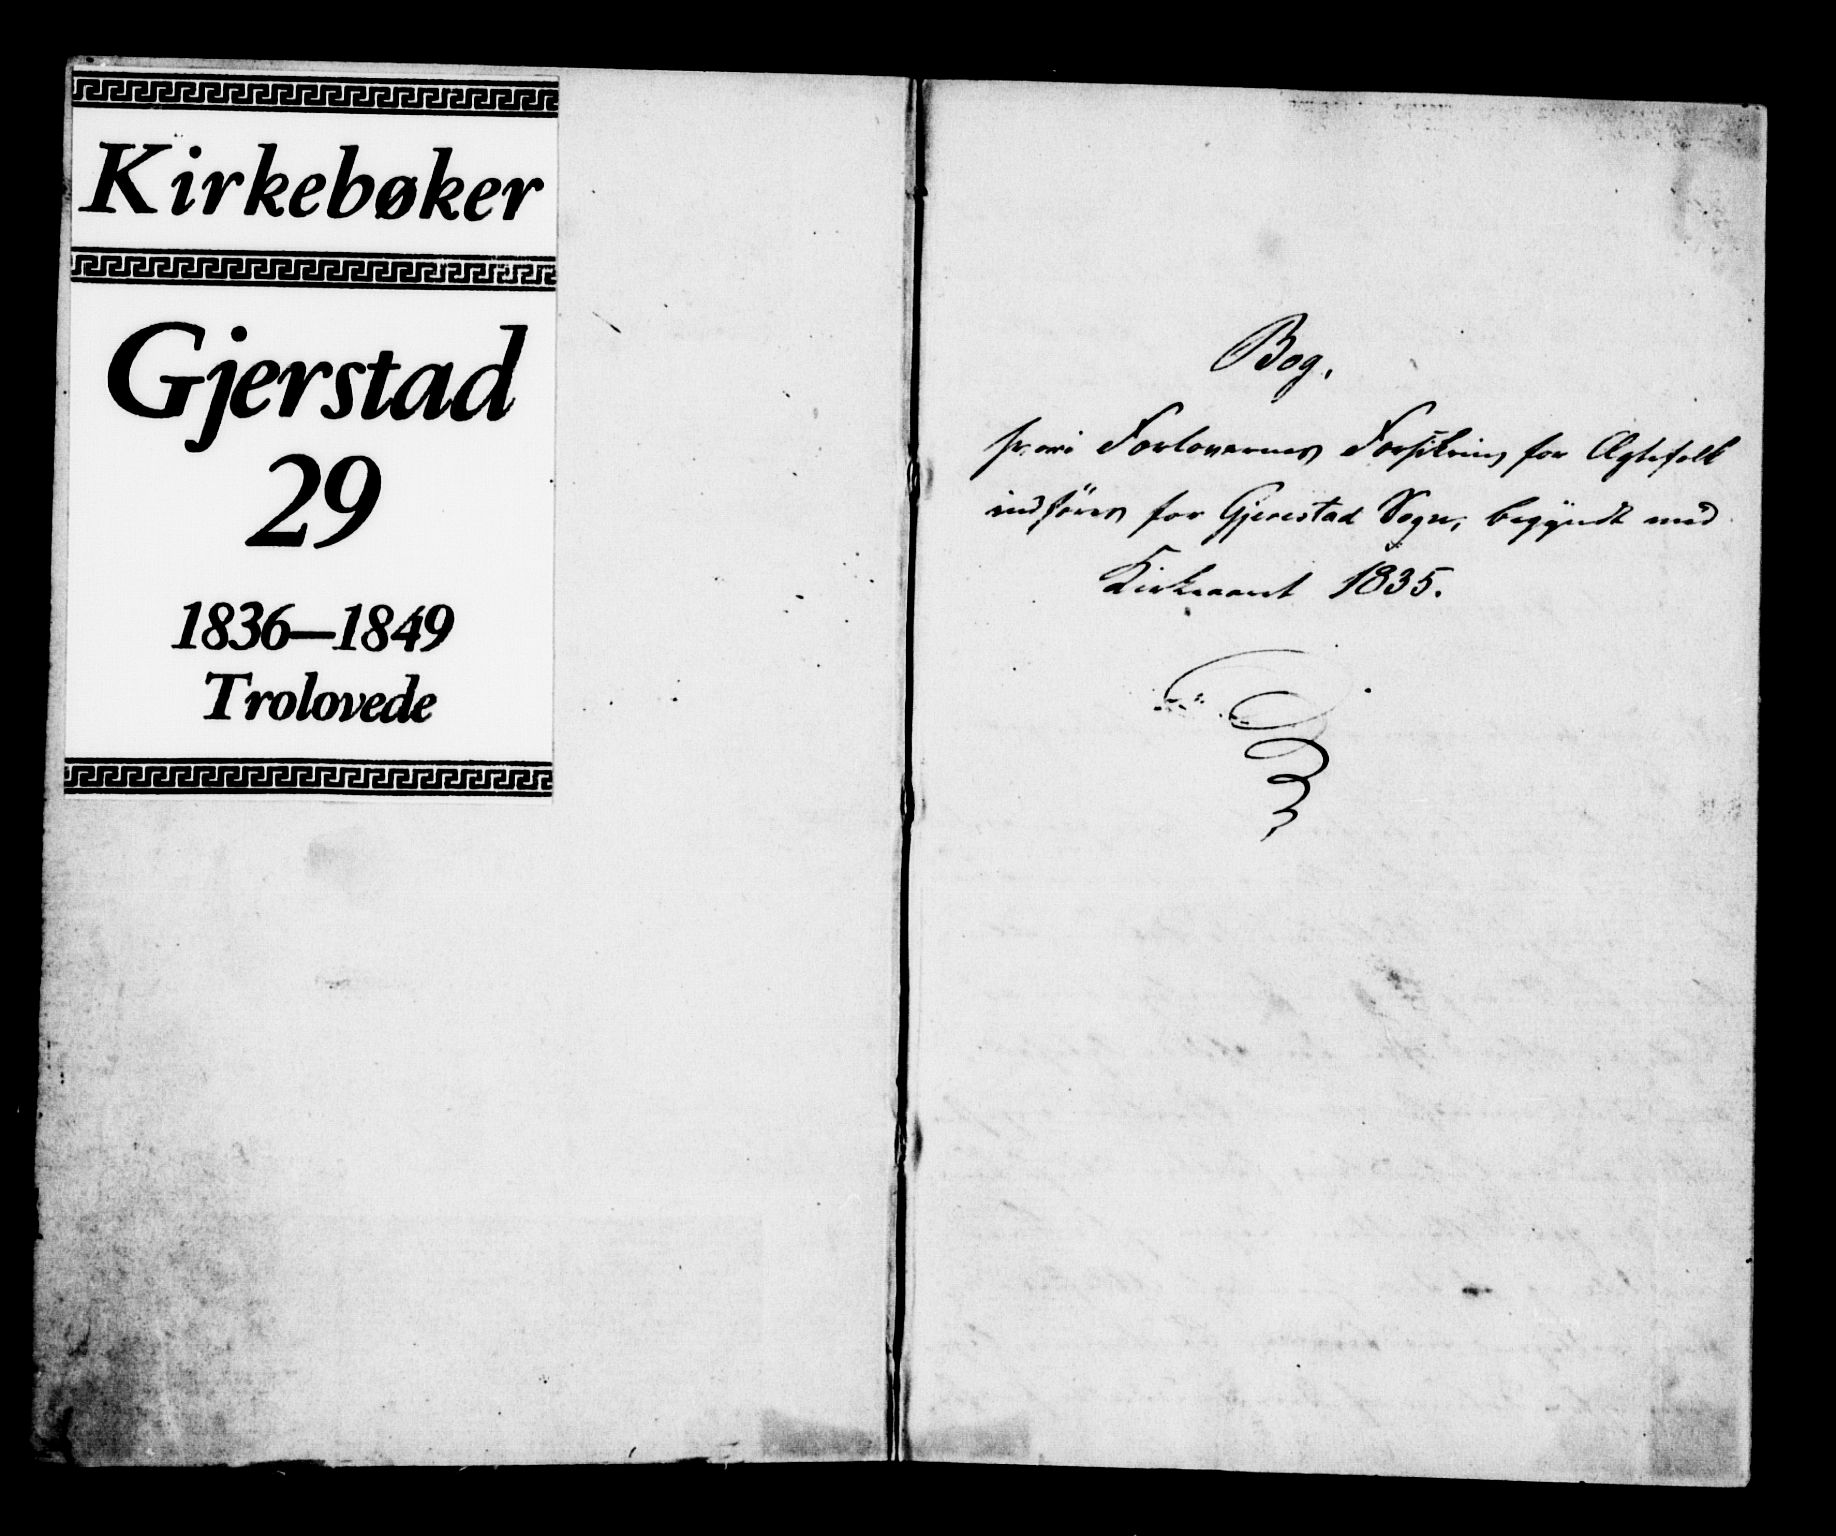 Kirkebøker
Gjerstad
29
1836—1849
Trolovede
Bog,
hvori Forlovernes Forsikring for Ægtefolk
indføres for Gjerestad Sogn, begÿndt med
Kirkeaaret 1835.